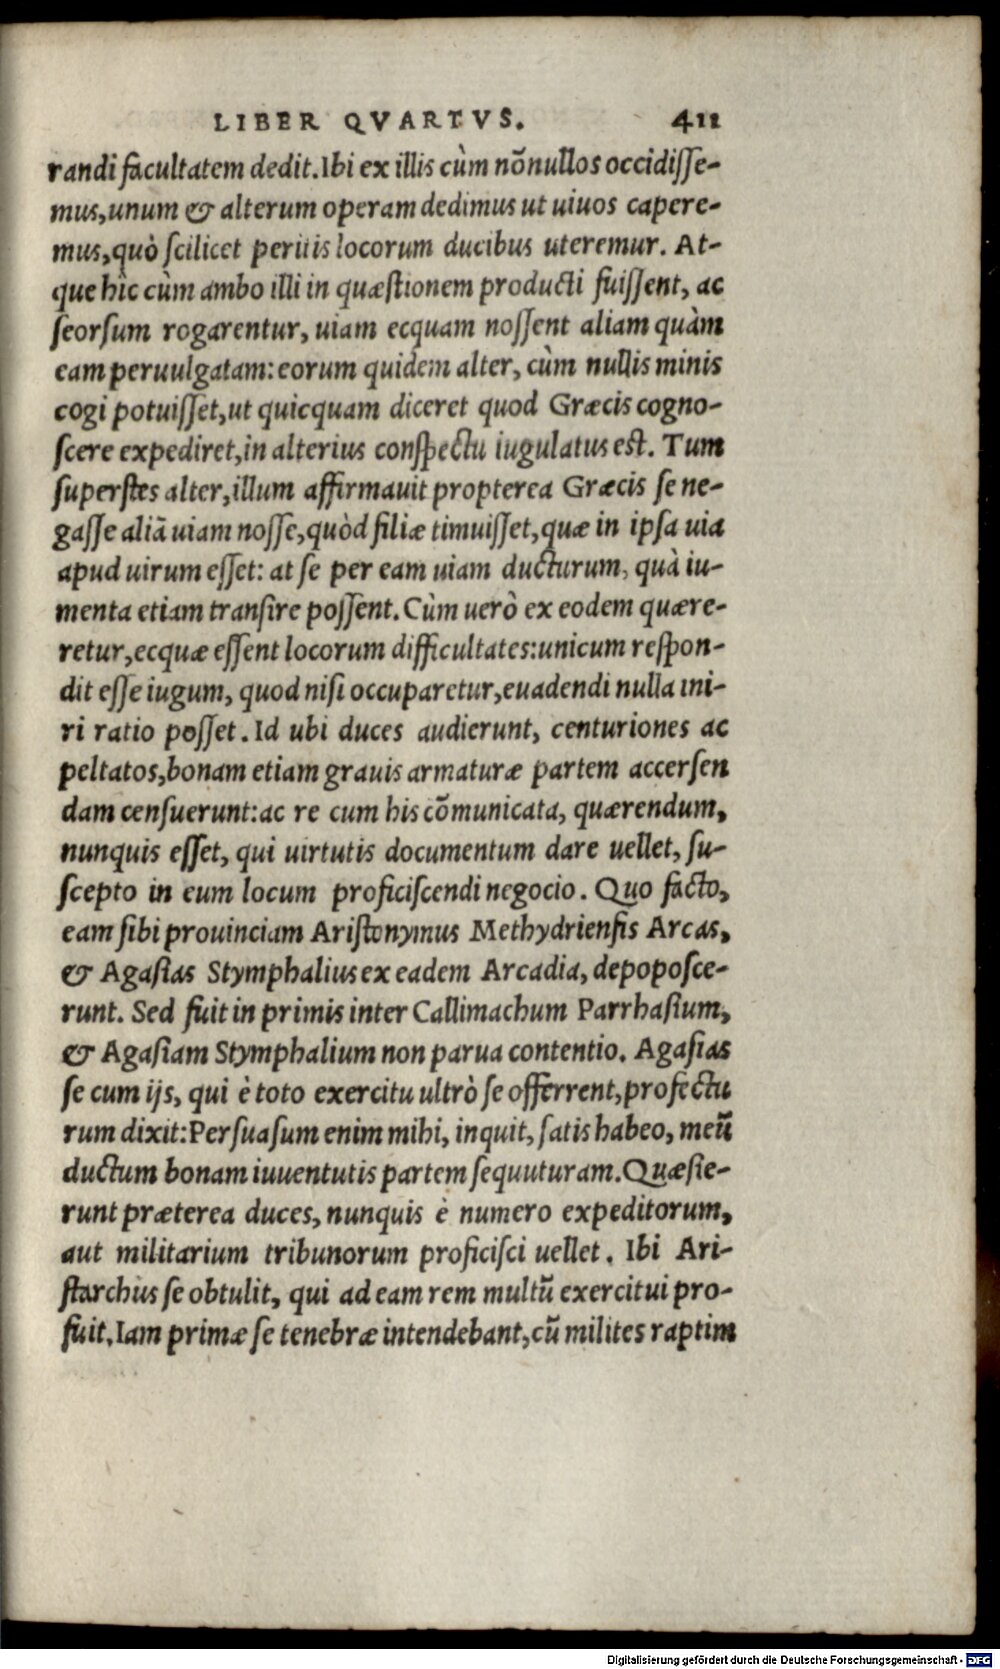 LIBER QVARTVS. 411
randi facultatem dedit. Ibi ex illis cùm nōnullos occidisse-
mus, unum & alterum operam dedimus ut uiuos capere-
mus, quò scilicet peritis locorum ducibus uteremur. At-
que hîc cùm ambo illi in quæstionem producti fuissent, ac
seorsum rogarentur, uiam ecquam nossent aliam quàm
eam peruulgatam: eorum quidem alter, cùm nullis minis
cogi potuisset, ut quicquam diceret quod Græcis cogno-
scere expediret, in alterius conspectu iugulatus est. Tum
superstes alter, illum affirmauit propterea Græcis se ne-
gasse aliā uiam nosse, quòd filiæ timuisset, quæ in ipsa uia
apud uirum esset: at se per eam uiam ducturum, quà iu-
menta etiam transire possent. Cùm uerò ex eodem quære-
retur, ecquæ essent locorum difficultates: unicum respon-
dit esse iugum, quod nisi occuparetur, euadendi nulla ini-
ri ratio posset. Id ubi duces audierunt, centuriones ac
peltatos, bonam etiam grauis armaturæ partem accersen
dam censuerunt: ac re cum his cōmunicata, quærendum,
nunquis esset, qui uirtutis documentum dare uellet, su-
scepto in eum locum proficiscendi negocio. Quo facto,
eam sibi prouinciam Aristonymus Methydriensis Arcas,
& Agasias Stymphalius ex eadem Arcadia, depoposce-
runt. Sed fuit in primis inter Callimachum Parrhasium,
& Agasiam Stymphalium non parua contentio. Agasias
se cum ijs, qui è toto exercitu ultrò se offerrent, profectu
rum dixit: Persuasum enim mihi, inquit, satis habeo, meū
ductum bonam iuuentutis partem sequuturam. Quæsie-
runt præterea duces, nunquis è numero expeditorum,
aut militarium tribunorum proficisci uellet. Ibi Ari-
starchus se obtulit, qui ad eam rem multū exercitui pro-
fuit. Iam primæ se tenebræ intendebant, cū milites raptim
Digitalisierung gefördert durch die Deutsche Forschungsgemeinschaft - DFG